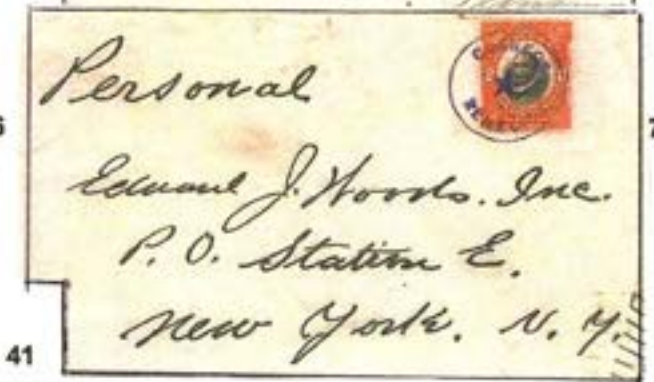 Personal
Edward J. Woods. Inc.
P. O. Station E.
New York. N. Y.
41